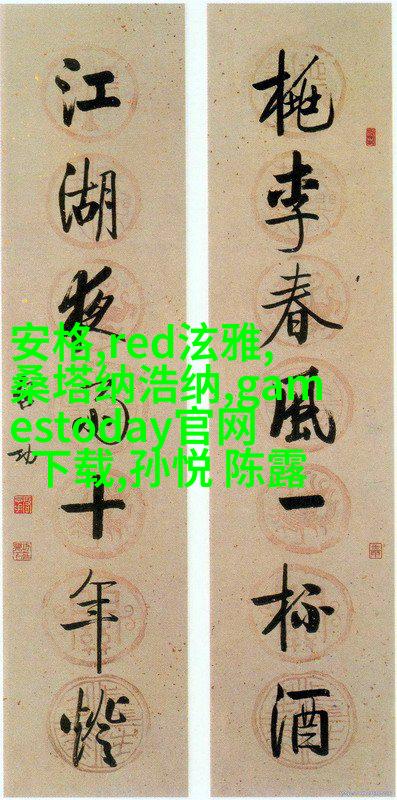 桃李春風一杯酒
江湖夜雨十年燈
启功
安格,red泫雅,
桑塔纳浩纳,gam
estoday官网
下载,孙悦 陈露